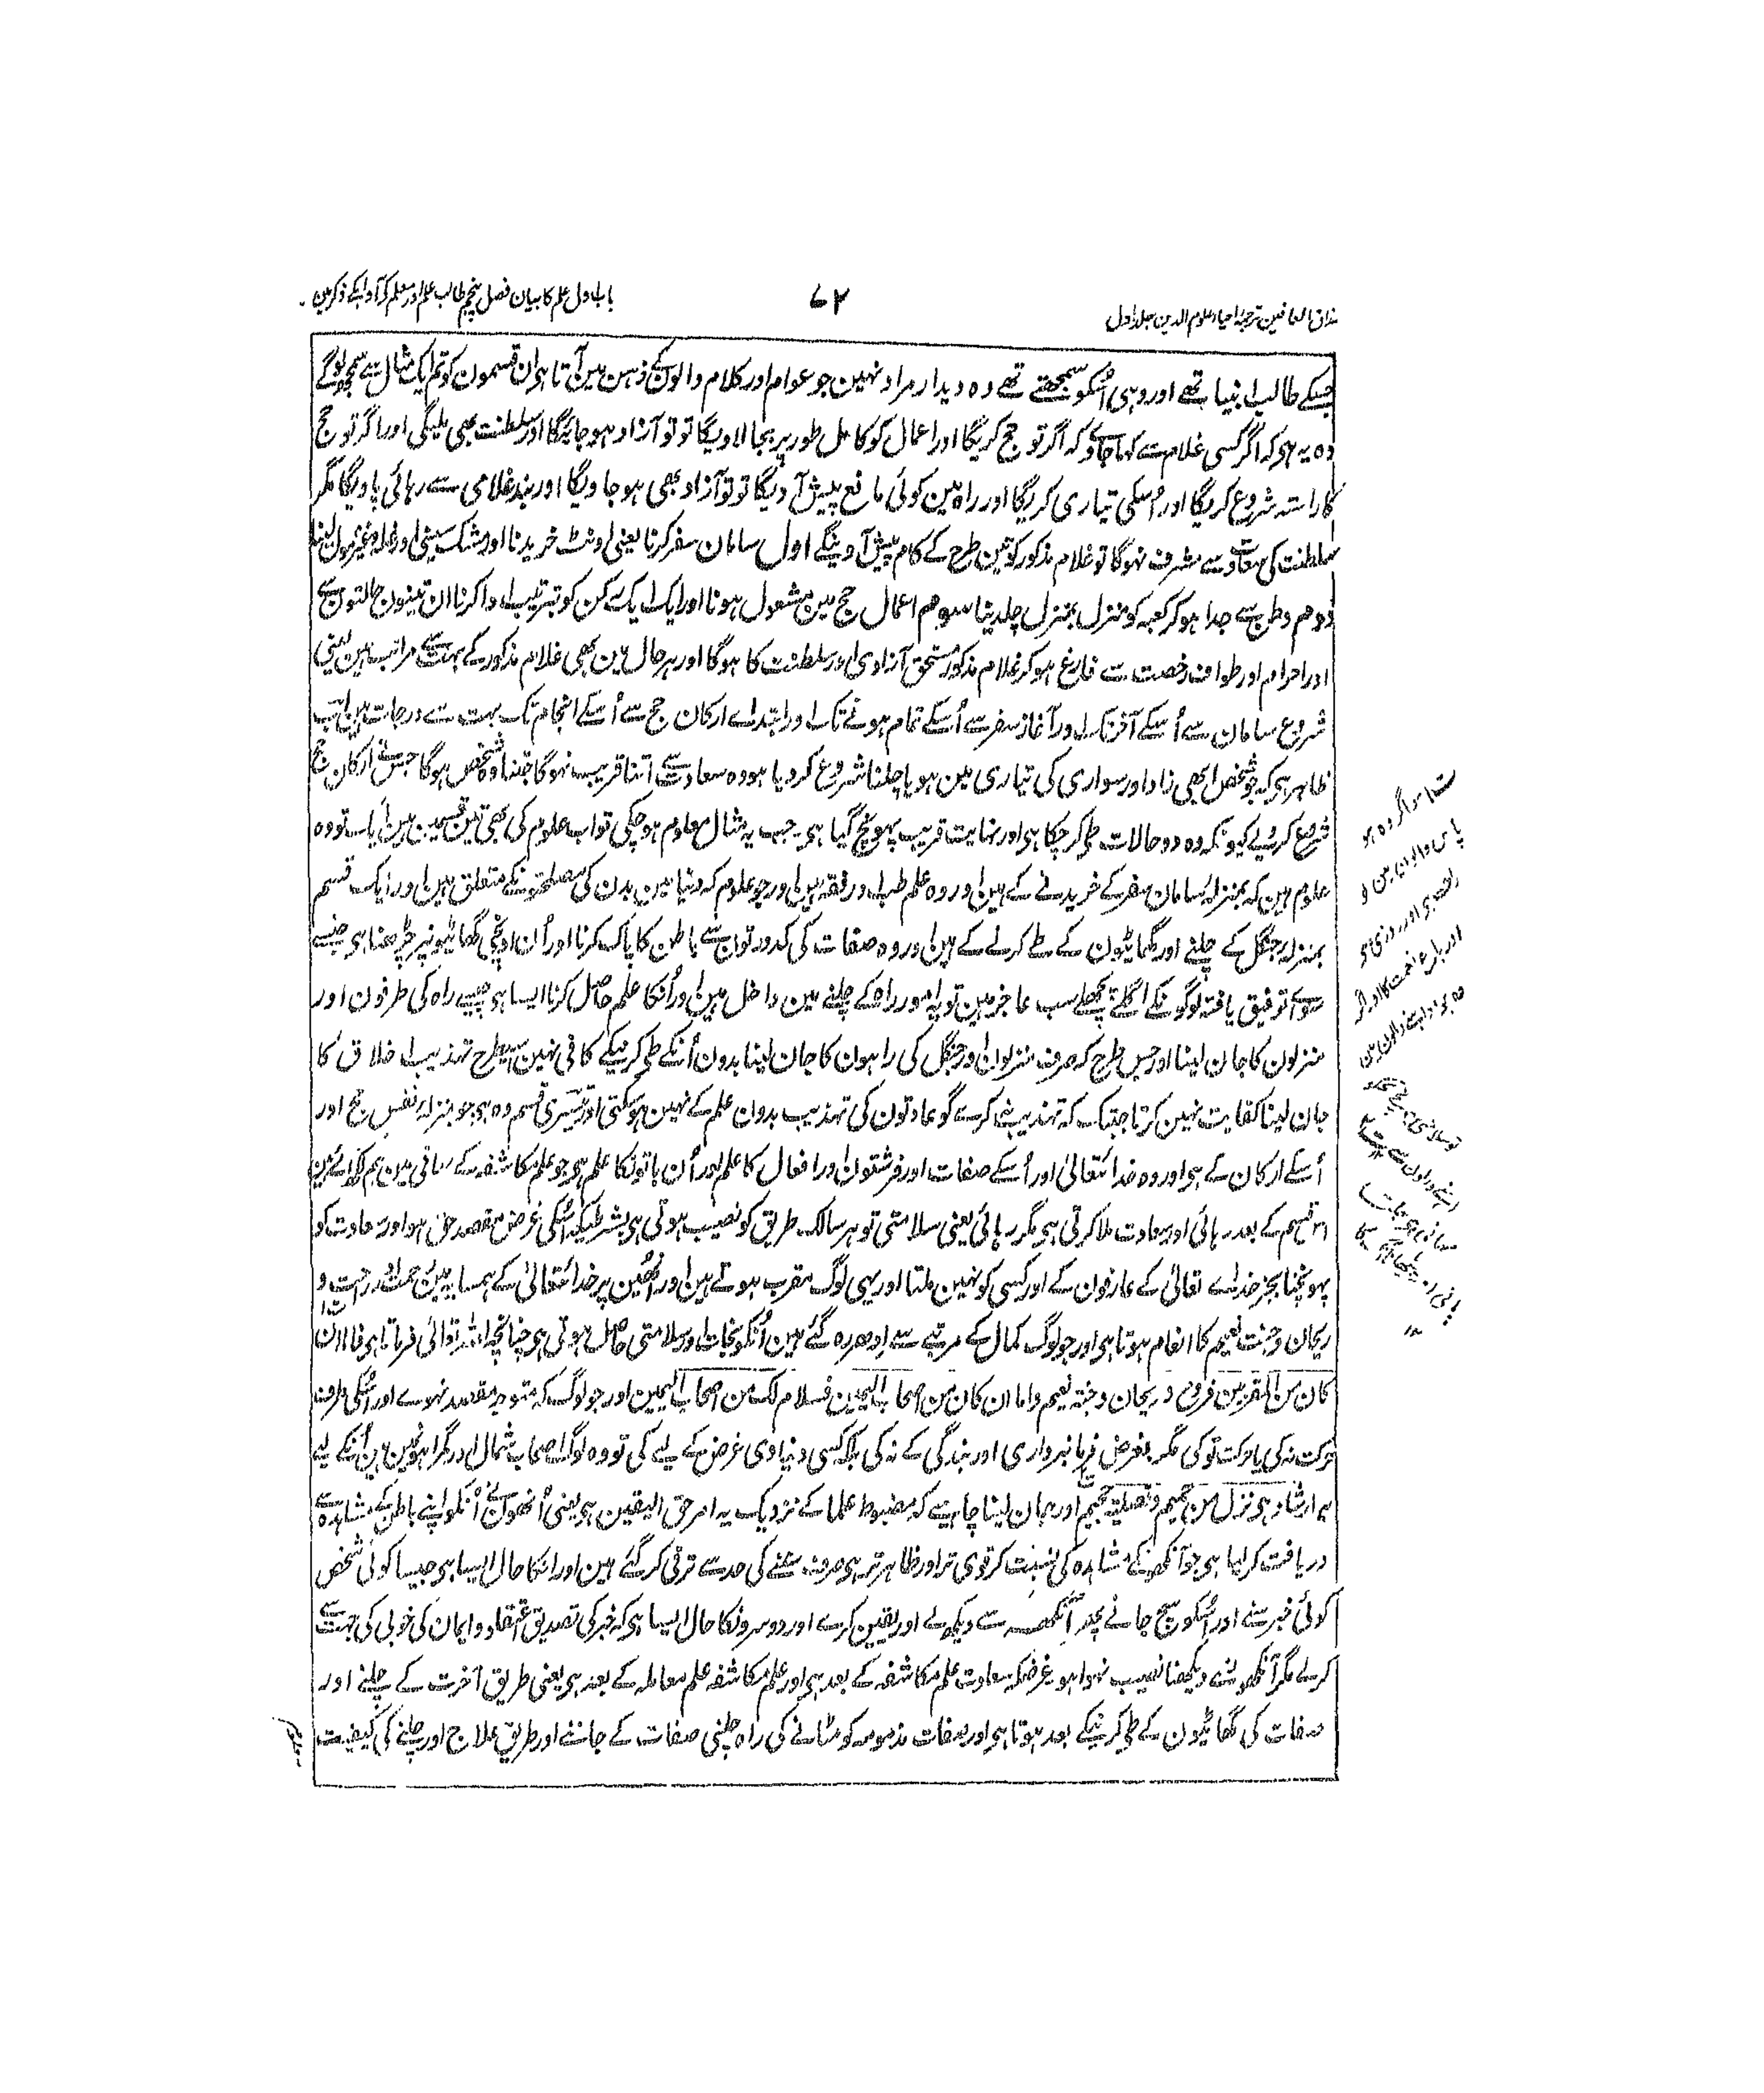 مذاق العارفین ترجمۂ احیاء علوم الدین جلد اول
۷۲
باب اول علم کا بیان فصل پنجم طالب علم اور معلم کے آداب کے ذکر مین
جسکے طالب انبیا تھے اور وہی اُسکو سمجھتے تھے وہ دیدار مراد نہین جو عوام اور کلام والونکے ذہن مین آتا ہی ان قسمون کو تم ایک مثال سے سمجھ لوگے
وہ یہ ہی کہ اگر کسی غلام سے کہا جاوے کہ اگر تو حج کریگا اور اعمال کو کامل طور پر بجا لاویگا تو تو آزاد ہو جائیگا اور سلطنت بھی ملیگی اور اگر تو حج
کا راستہ شروع کریگا اور اُسکی تیاری کریگا اور راہ مین کوئی مانع پیش آویگا تو تو آزاد بھی ہو جاویگا اور بند غلامی سے رہائی پاویگا مگر
سلطنت کی سعادت سے مشرف نہوگا تو غلام مذکور کو تین طرح کے کام پیش آوینگے اول سامان سفر کرنا یعنی اونٹ خریدنا اور مشک سینی اور غلہ وغیرہ مول لینا
دوم وطن سے جدا ہو کر کعبہ کو منزل بمنزل چلدینا سوم اعمال حج مین مشغول ہونا اور ایک ایک رکن کو بترتیب ادا کرنا ان تینون حالتون سے
اور احرام اور طواف رخصت سے فارغ ہو کر غلام مذکور مستحق آزادی اور سلطنت کا ہوگا اور ہر حال مین بھی غلام مذکور کے بہت سے مراتب ہین یعنی
شروع سامان سے اُسکے آخر تک اور آغاز سفر سے اُسکے تمام ہونے تک اور ابتداے ارکان حج سے اُسکے انجام تک بہت سے درجات ہین اب
ظاہر ہی کہ جو شخص ابھی زاد اور سواری کی تیاری مین ہو یا چلنا شروع کر دیا ہو وہ سعادت سے اتنا قریب نہوگا جتنا وہ شخص ہوگا جسنے ارکان حج
شروع کر دیے کیونکہ وہ دو حالات طی کر چکا ہی اور نہایت قریب پہونچ گیا ہی جب یہ مثال معلوم ہو چکی تو اب علوم کی بھی تین قسمین ہین ایک تو وہ
علوم ہین کہ بمنزلہ سامان سفر کے خریدنے کے ہین اور وہ علم طب اور فقہ ہین اور جو علوم کہ دنیا مین بدن کی مصلحتونکے متعلق ہین اور ایک قسم
بمنزلہ جنگل کے چلنے اور گھاٹیون کے طے کرنے کے ہین اور وہ صفات کی کدورتوں سے باطن کا پاک کرنا اور اُن اونچی گھاٹیونپر چڑھنا ہی جنسے
سوائے توفیق یافتہ لوگونکے اگلے پچھلے سب عاجز ہین تو یہ امور راہ کے چلنے مین داخل ہین اور اُنکا علم حاصل کرنا ایسا ہی جیسے راہ کی طرفون اور
منزلون کا جان لینا اور جس طرح کہ صرف منزلون اور جنگل کی راہون کا جان لینا بدون اُنکے طی کرنیکے کافی نہین اسیطرح تہذیب اخلاق کا
جان لینا کفایت نہین کرتا جبتک کہ تہذیب نکرے گو عادتون کی تہذیب بدون علم کے نہین ہو سکتی اور تیسری قسم وہ ہی جو بمنزلہ نفس حج اور
اُسکے ارکان کے ہی اور وہ خدا تعالیٰ اور اُسکے صفات اور فرشتون اور افعال کا علم اور اُن باتونکا علم ہی جو علم مکاشفہ کے معانی مین ہم لکھ آئے ہین
اس قسم کے بعد رہائی اور سعادت ملا کرتی ہی مگر رہائی یعنی سلامتی تو ہر سالک طریق کو نصیب ہوتی ہی بشرطیکہ اُسکی غرض مقصد حق ہو اور سعادت کو
پہونچنا بجز خداے تعالیٰ کے عارفون کے اور کسی کو نہین ملتا اور یہی لوگ مقرب ہوتے ہین اور اُنھین پر خدا تعالیٰ کے ہمسایہ مین رحمت اور راحت و
ریحان و جنت نعیم کا انعام ہوتا ہی اور جو لوگ کمال کے مرتبے سے ادھر رہ گئے ہین اُنکو نجات اور سلامتی حاصل ہوتی ہی چنانچہ اللہ تعالیٰ فرماتا ہی فاما ان
کان من المقربین فروح وریحان وجنۃ نعیم واما ان کان من اصحاب الیمین فسلام لک من اصحاب الیمین اور جو لوگ کہ متوجہ مقصد نہوے اور اُسکی طرف
حرکت نہ کی یا حرکت تو کی مگر بغرض فرمانبرداری اور بندگی کے نہ کی بلکہ کسی دنیاوی غرض کے لیے کی تو وہ لوگ اصحاب شمال اور گمراہونمین ہین اُنکے لیے
یہ ارشاد ہی فنزل من حمیم وتصلیۃ جحیم اور جان لینا چاہیے کہ مضبوط علما کے نزدیک یہ امر حق الیقین ہی یعنی اُنھون نے اُنکو اپنے باطن کے مشاہدہ سے
دریافت کر لیا ہی جو آنکھونکے مشاہدہ کی نسبت کر قوی تر اور ظاہر تر ہی صرف سننے کی حد سے ترقی کر گئے ہین اور انکا حال ایسا ہی جیسا کوئی شخص
کوئی خبر سنے اور اُسکو سچ جانے پھر آنکھ سے دیکھ لے اور یقین کرے اور دوسرونکا حال ایسا ہی کہ خبر کی تصدیق اعتقاد و ایمان کی خوبی کی جہت سے
کر لے مگر آنکھون سے دیکھنا نصیب نہوا ہو غرضکہ سعادت علم مکاشفہ کے بعد ہی اور علم مکاشفہ علم معاملہ کے بعد ہی یعنی طریق آخرت کے چلنے اور
صفات کی گھاٹیون کے طی کرنیکے بعد ہوتا ہی اور صفات مذمومہ کو مٹانے کی راہ چلنی صفات کے جاننے اور طریق علاج اور چلنے کی کیفیت
سو اگر وہ ہو
پاس والون مین
اور باغ نعمت کا اور اگر
وہ ہوا داہنے والون مین